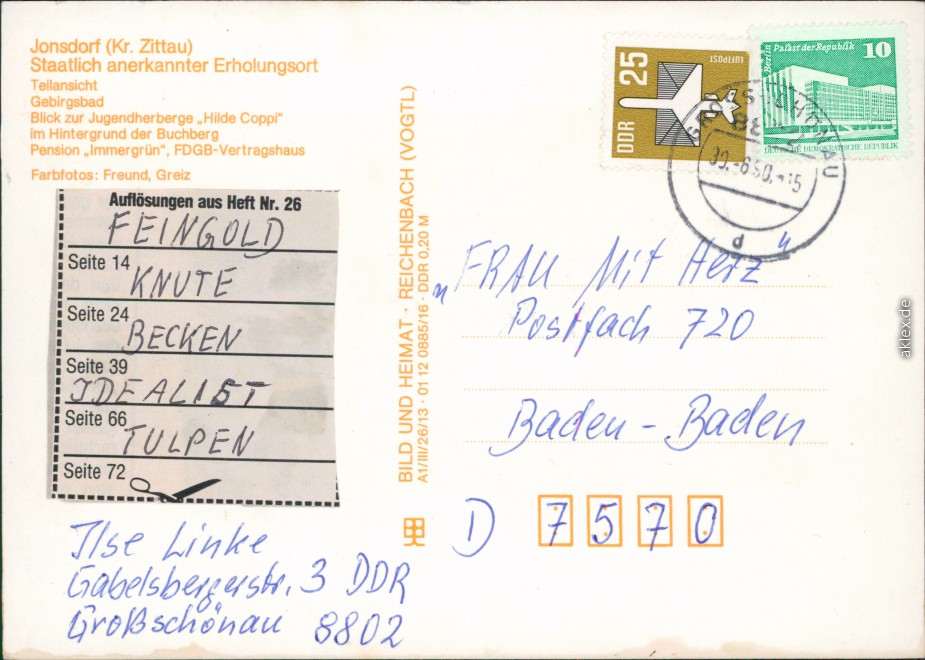 Jonsdorf (Kr. Zittau)
Staatlich anerkannter Erholungsort
Teilansicht
Gebirgsbad
Blick zur Jugendherberge „Hilde Coppi"
im Hintergrund der Buchberg
Pension „Immergrün", FDGB-Vertragshaus
Farbfotos: Freund, Greiz
Auflösungen aus Heft Nr. 26
FEINGOLD
Seite 14
KNUTE
Seite 24
BECKEN
Seite 39
IDEALIST
Seite 66
TULPEN
Seite 72
Ilse Linke
Gabelsbergerstr. 3 DDR
Großschönau 8802
BILD UND HEIMAT · REICHENBACH (VOGTL)
A1/III/26/13 · 01 12 0885/16 · DDR 0,20 M
DDR 25
LUFTPOST
Berlin Palast der Republik 10
DEUTSCHE DEMOKRATISCHE REPUBLIK
GROSSSCHÖNAU
d
„FRAU Mit Herz"
Postfach 720
Baden-Baden
D 7570
aklex.de